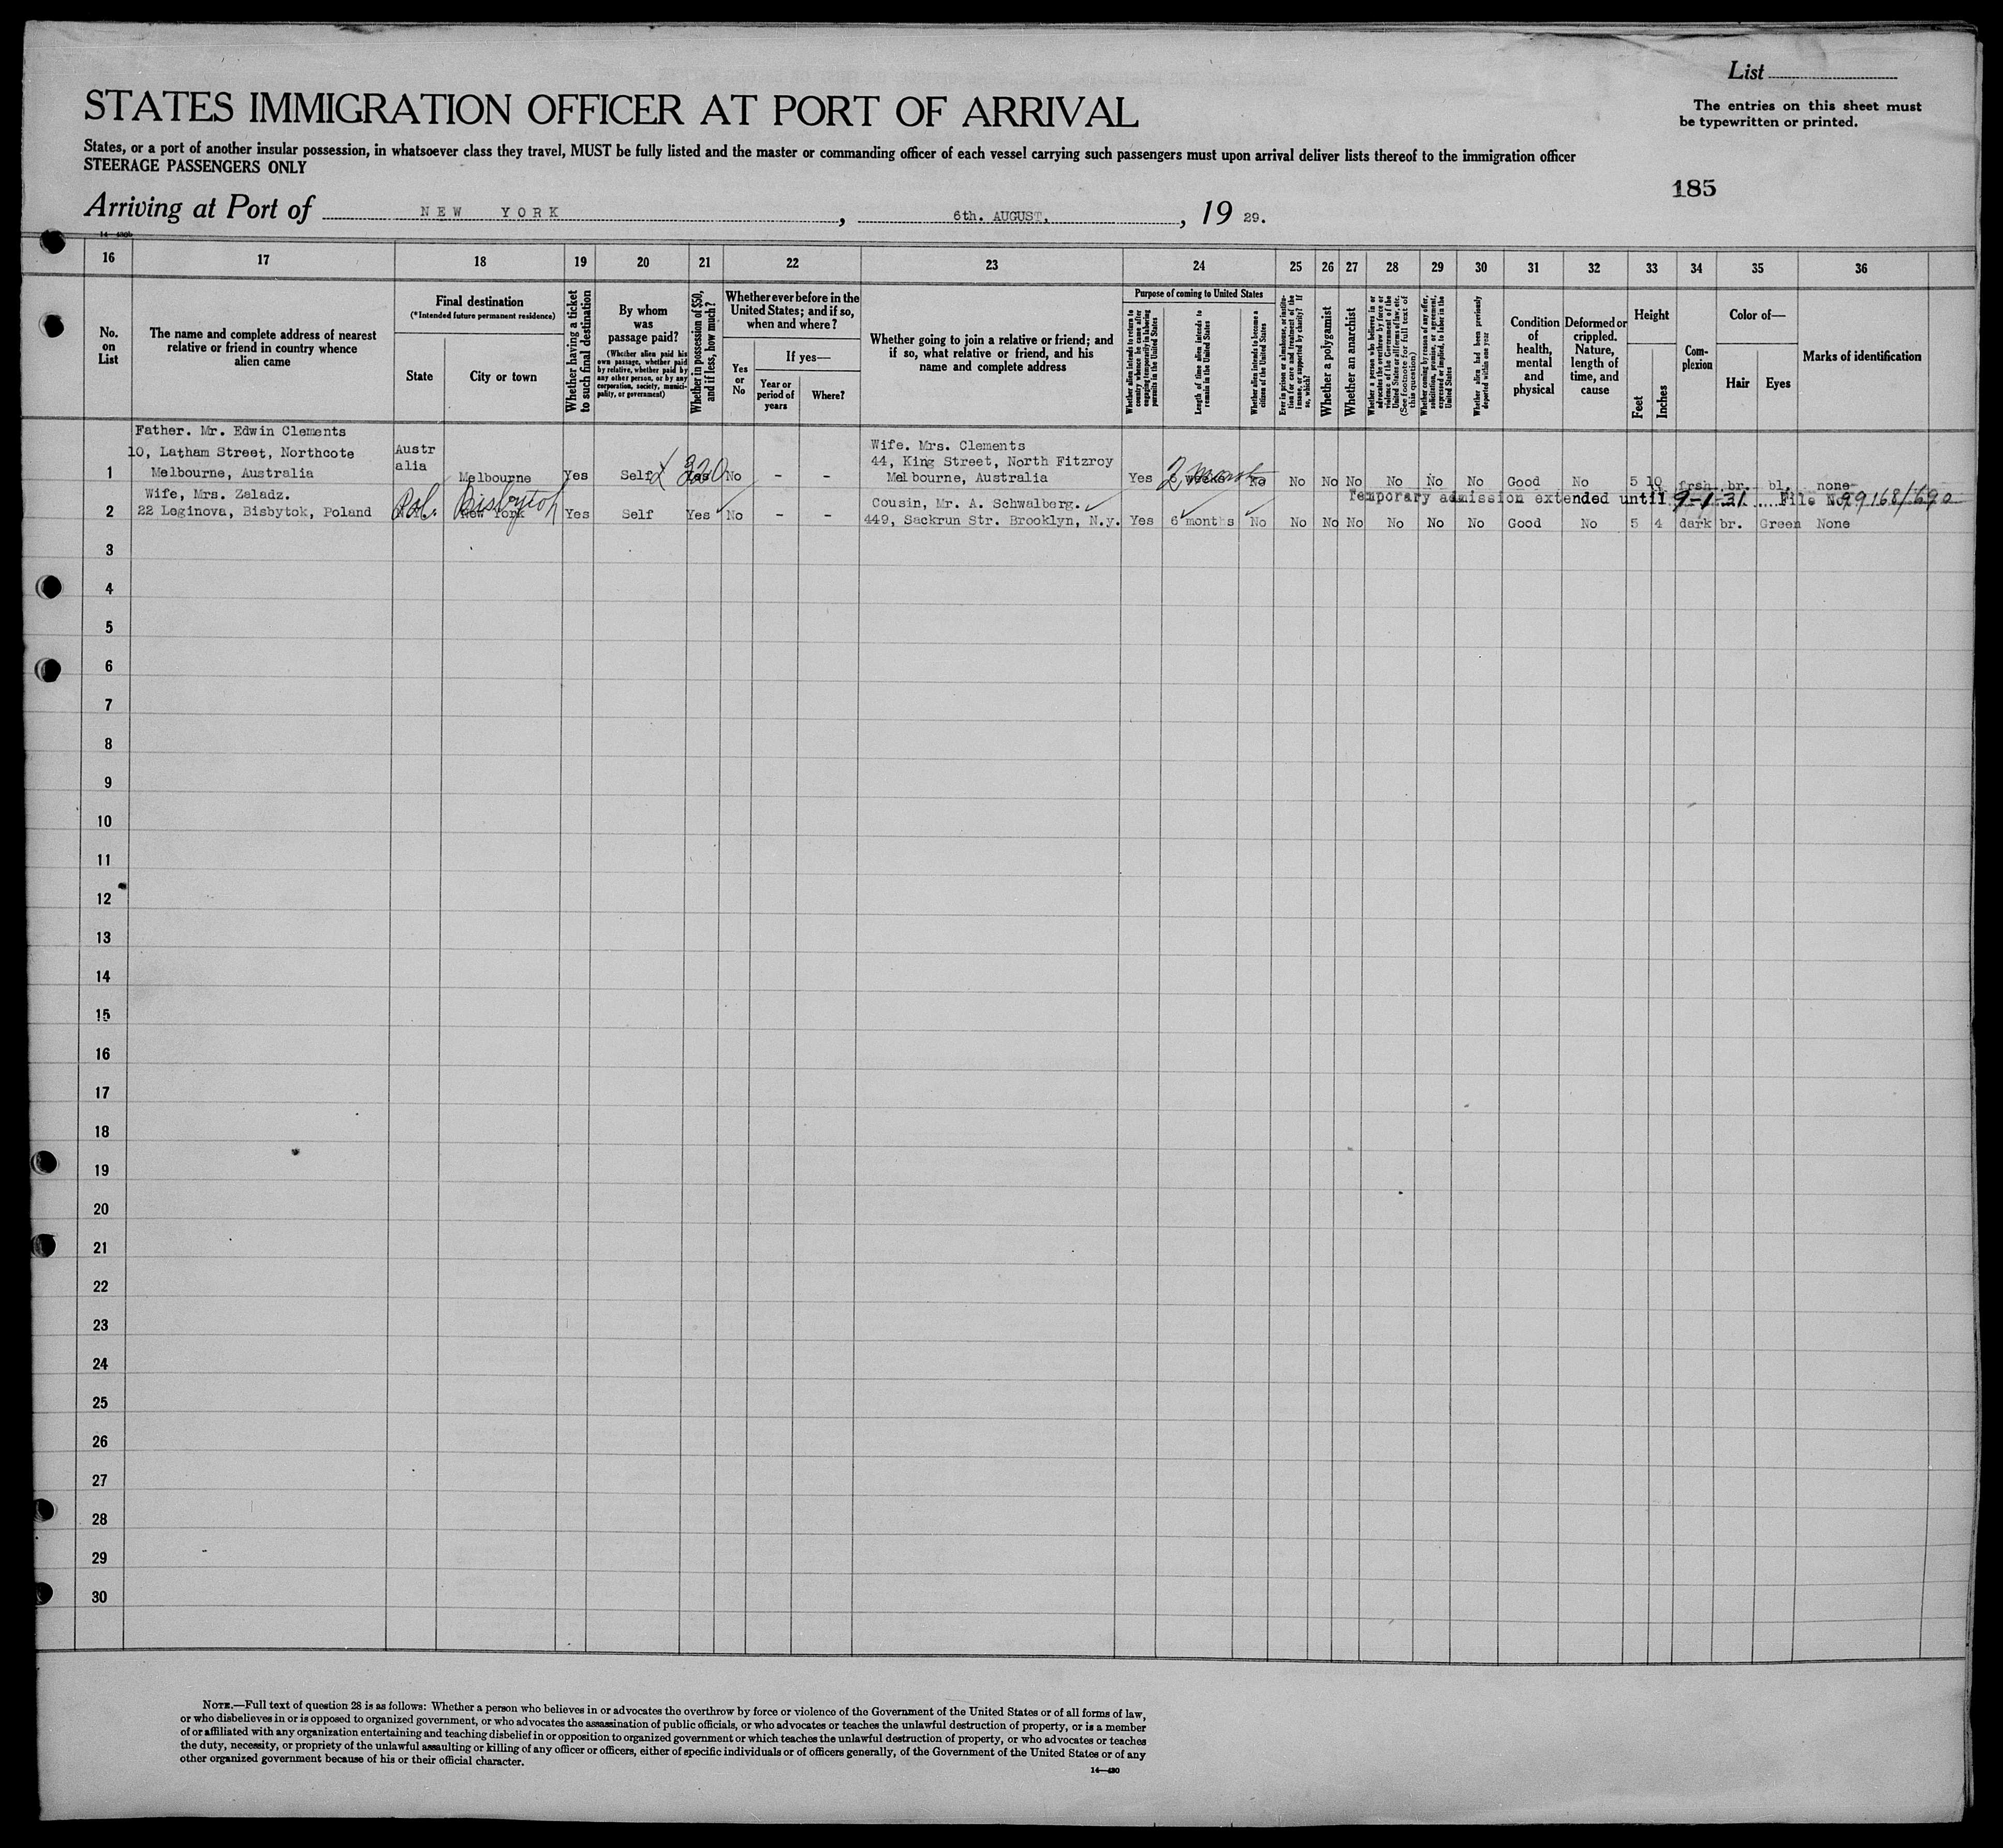 List
The entries on this sheet must
be typewritten or printed.
STATES IMMIGRATION OFFICER AT PORT OF ARRIVAL
States, or a port of another insular possession, in whatsoever class they travel, MUST be fully listed and the master or commanding officer of each vessel carrying such passengers must upon arrival deliver lists thereof to the immigration officer
STEERAGE PASSENGERS ONLY
185
Arriving at Port of NEW YORK, 6th. AUGUST., 19 29.
14—430b
16 17 18 19 20 21 22 23 24 25 26 27 28 29 30 31 32 33 34 35 36
No.
on
List
The name and complete address of nearest
relative or friend in country whence
alien came
Final destination
(*Intended future permanent residence)
State
City or town
Whether having a ticket
to such final destination
By whom
was
passage paid?
(Whether alien paid his
own passage, whether paid
by relative, whether paid by
any other person, or by any
corporation, society, munici-
pality, or government)
Whether in possession of $50,
and if less, how much?
Whether ever before in the
United States; and if so,
when and where?
Yes
or
No
If yes—
Year or
period of
years
Where?
Whether going to join a relative or friend; and
if so, what relative or friend, and his
name and complete address
Purpose of coming to United States
Whether alien intends to return to
country whence he came after
engaging temporarily in laboring
pursuits in the United States
Length of time alien intends to
remain in the United States
Whether alien intends to become a
citizen of the United States
Ever in prison or almshouse, or institu-
tion for care and treatment of the
insane, or supported by charity? If
so, which?
Whether a polygamist
Whether an anarchist
Whether a person who believes in or
advocates the overthrow by force or
violence of the Government of the
United States or all forms of law, etc.
(See footnote for full text of
this question)
Whether coming by reason of any offer,
solicitation, promise, or agreement,
expressed or implied, to labor in the
United States
Whether alien had been previously
deported within one year
Condition
of
health,
mental
and
physical
Deformed or
crippled.
Nature,
length of
time, and
cause
Height
Feet
Inches
Com-
plexion
Color of—
Hair
Eyes
Marks of identification
Father. Mr. Edwin Clements
10, Latham Street, Northcote
Melbourne, Australia
Austr
alia
1 Melbourne Yes Self £ 320 No - -
Wife. Mrs. Clements
44, King Street, North Fitzroy
Melbourne, Australia
Yes 2 No No No No No No No Good No 5 10 frsh br. bl. none
Temporary admission extended until 9-1-31 File No. 99168/690
Wife, Mrs. Zeladz.
2 22 Loginova, Bisbytok, Poland Pol. New York Yes Self Yes No - -
Cousin, Mr. A. Schwalberg.
449, Sackrun Str. Brooklyn, N.y. Yes 6 months No No No No No No No Good No 5 4 dark br. Green None
3
4
5
6
7
8
9
10
11
12
13
14
15
16
17
18
19
20
21
22
23
24
25
26
27
28
29
30
NOTE.—Full text of question 28 is as follows: Whether a person who believes in or advocates the overthrow by force or violence of the Government of the United States or of all forms of law,
or who disbelieves in or is opposed to organized government, or who advocates the assassination of public officials, or who advocates or teaches the unlawful destruction of property, or is a member
of or affiliated with any organization entertaining and teaching disbelief in or opposition to organized government or which teaches the unlawful destruction of property, or who advocates or teaches
the duty, necessity, or propriety of the unlawful assaulting or killing of any officer or officers, either of specific individuals or of officers generally, of the Government of the United States or of any
other organized government because of his or their official character.
14—430